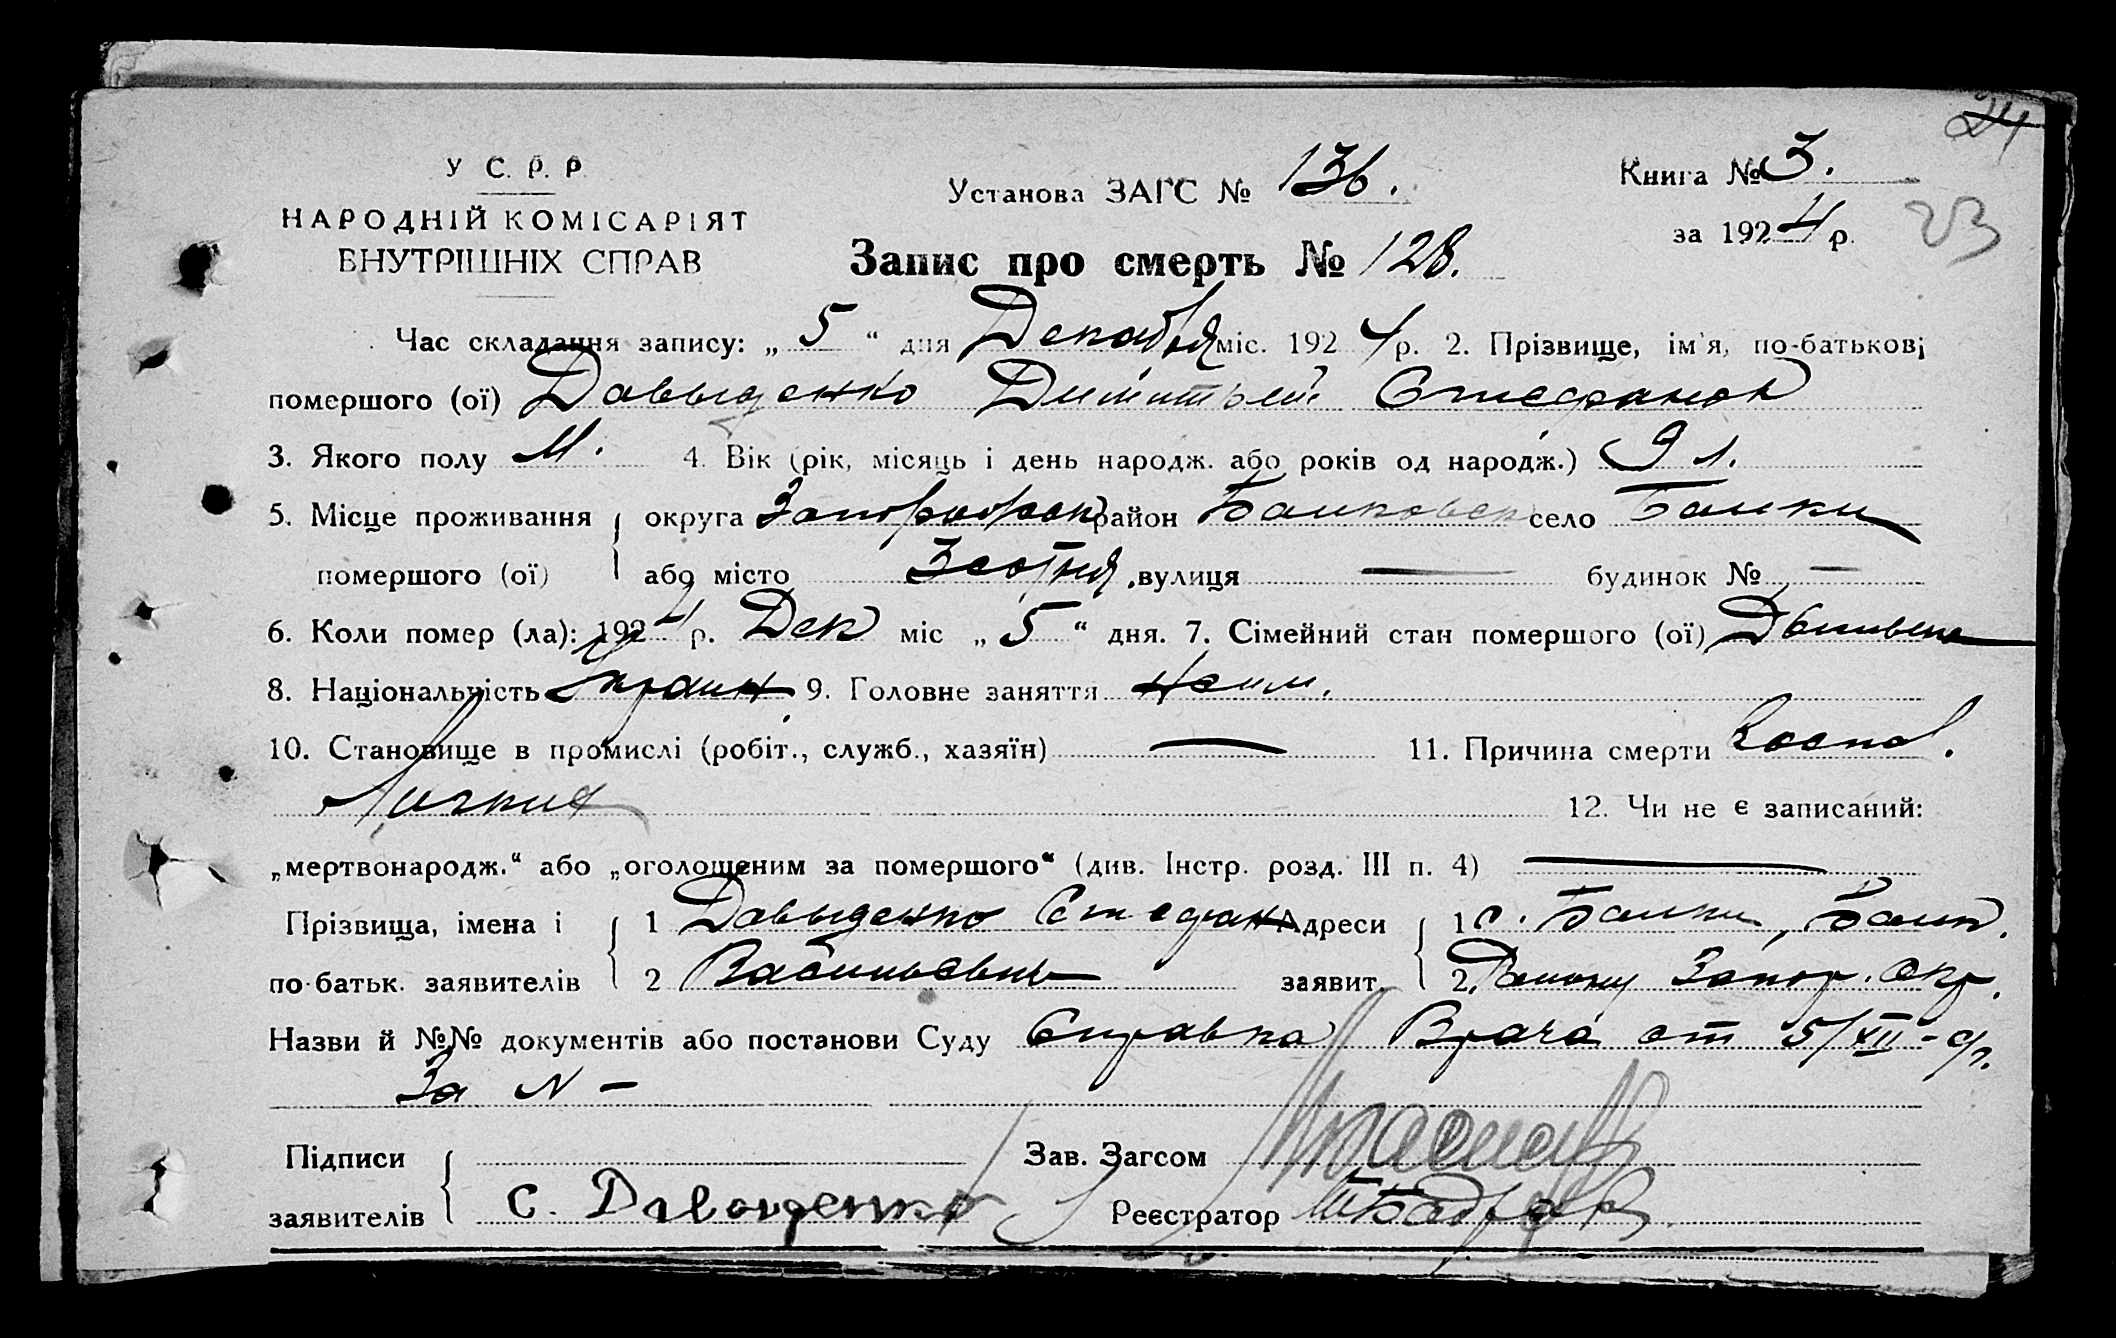 24
У С. Р. Р.
НАРОДНІЙ КОМІСАРІЯТ
ВНУТРІШНІХ СПРАВ
Установа ЗАГС № 136.
Книга № 3.
за 1924 р.
23
Запис про смерть № 128.
Час складання запису: „ 5 “ дня Декабря міс. 1924 р. 2. Прізвище, ім'я, по-батькові
помершого (ої) Давыденко Димитрий Стефанов
3. Якого полу М. 4. Вік (рік, місяць і день народж. або років од народж.) 9 л.
5. Місце проживання округа район Балковск село Балки
помершого (ої) або місто вулиця — будинок № —
6. Коли помер (ла): 1924 р. Дек міс „ 5 “ дня. 7. Сімейний стан помершого (ої)
8. Національність Украин. 9. Головне заняття
10. Становище в промислі (робіт., служб., хазяїн) — 11. Причина смерти Воспал.
12. Чи не є записаний:
„мертвонародж.“ або „оголошеним за помершого“ (див. Інстр. розд. III п. 4) —
Прізвища, імена і 1 Давыденко Стефан Адреси 1 с. Балки, Балк.
по-батьк. заявителів 2 Васильевич заявит. 2. Району Запор. Окр.
Назви й №№ документів або постанови Суду Справка Врача от 5/XII - с/г.
За N —
Підписи Зав. Загсом
заявителів С. Давыденко Реєстратор